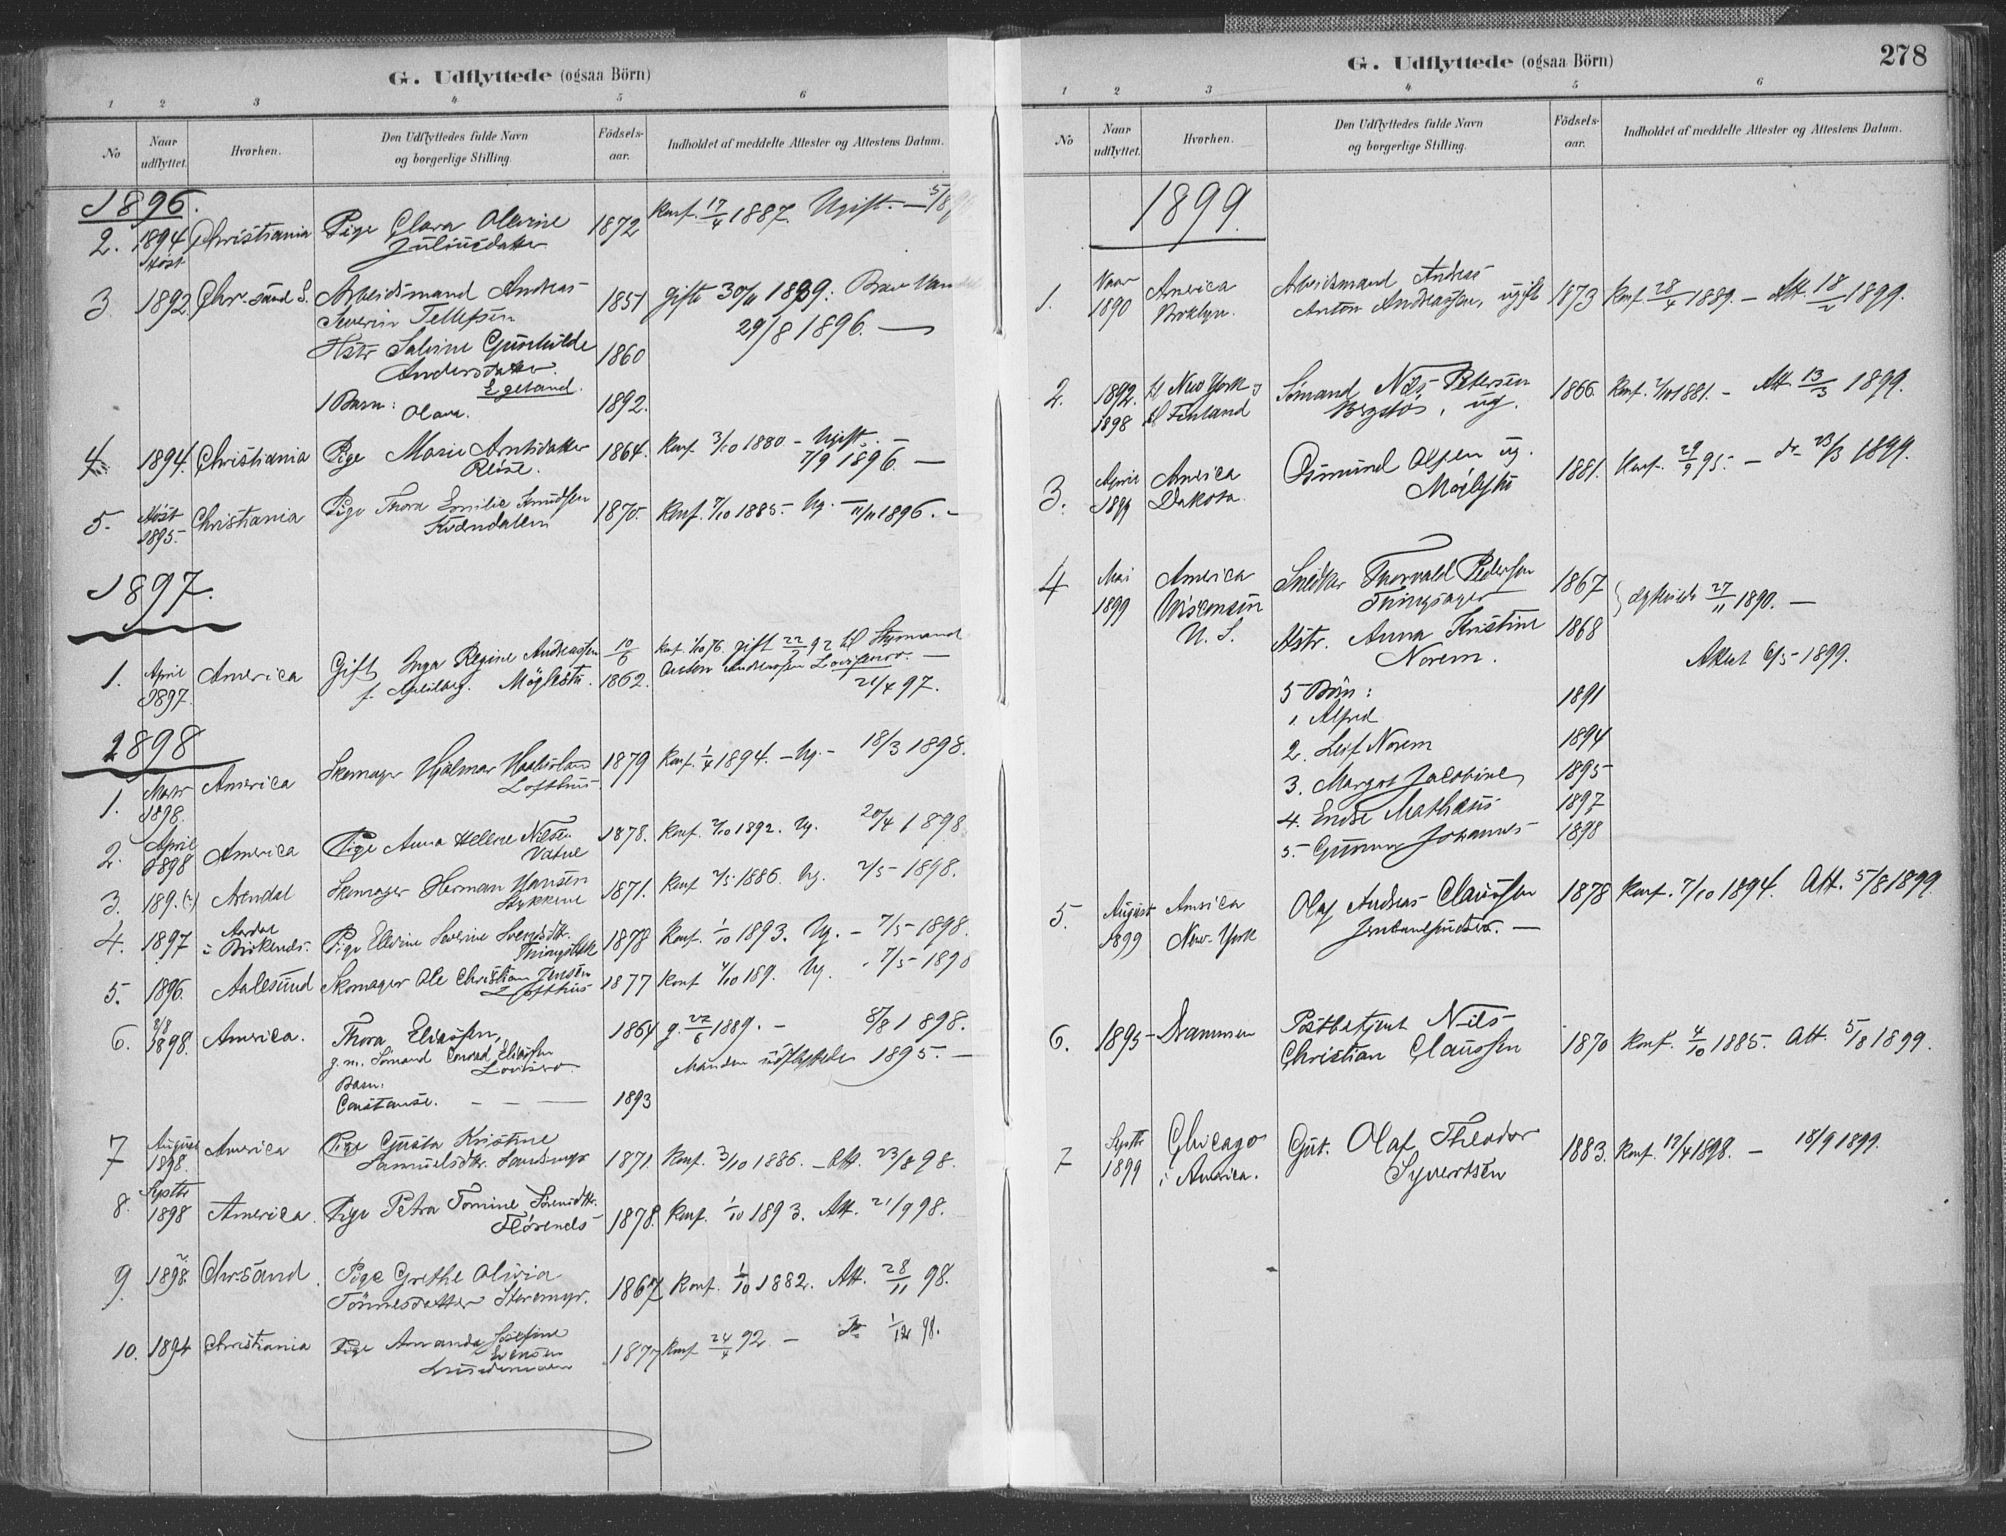 G. Udflyttede (ogsaa Börn)
1 2 3 4 5 6
No Naar udflyttet. Hvorhen. Den Udflyttedes fulde Navn og borgerlige Stilling. Födsels-aar. Indholdet af meddelte Attester og Attestens Datum.
1896.
2. 1894 Høst Christiania Pige Clara Olevine 1872 Konf. 17/4 1887. Ugift. —
Juliusdatter
3 1892 Chr.sand S. Arbeidsmand Andreas 1851 gift 30/11 1889.
Severin Tellefsen 29/8 1896. —
Hstr Salvine Gunhilde 1860
Andersdatter.
Egeland.
1 Barn: Olava. 1892.
4 1894. Christiania Pige Marie Arntsdatter 1864. Konf. 3/10 1880 — Ugift.
7/9 1896. —
5. Høst 1895. Christiania Pige Thora Emilie Knudsen 1870. Konf. 4/10 1885. Ug. 11/11 1896. —
1897.
1. April 1897. America Gift Inga Regine Andreassen 1862. gift 22/7 92 til Styrmand
Anton Andreassen —
21/4 97.
1898
1. Marts 1898. America Skomager Hjalmar 1879 Konf. 1/4 1894. — Ug. — 18/3 1898.
Lofthus
2. April 1898 America Pige Anna Helene Nilsen 1878. Konf. 2/10 1892. Ug. 20/4 1898.
Vatne
3. 189.(?) Arendal Skomager Herman Hansen 1871. Konf. 2/5 1886. Ug. 2/5 1898.
4. 1897 Pige Elvine Severine 1878 Konf. 1/10 1893. Ug. — 7/5 1898.
5. 1896. Aalesund Skomager Ole Christian Jensen 1877 Konf 4/10 189. Ug. 7/5 1898
Lofthus
6. 2/8 1898. America. Thora Eliassen, 1864 g. 22/6 1889. — 8/8 1898.
g.m. Sømand Conrad Eliassen Manden udflyttede 1895. —
Barn:
Constanse. — — — 1893
7 August 1898. America Pige Gusta Kristine 1871. Konf. 3/10 1886. — Att. 23/8 98.
Samuelsdtr.
8. Septbr 1898 America. Pige Petra Tomine 1878. Konf. 1/10 1893. Att. 21/9 98.
9. 1898. Chr.sand. Pige Grethe Olivia 1867 Konf. 1/10 1882. Att. 28/11 98.
Tønnesdatter Storemyr.
10. 1894 Christiania Pige Amanda Josefine 1877 Konf 24/4 92 — 1/12 98.
278
G. Udflyttede (ogsaa Börn)
1 2 3 4 5 6
No Naar udflyttet. Hvorhen. Den Udflyttedes fulde Navn og borgerlige Stilling. Födsels-aar. Indholdet af meddelte Attester og Attestens Datum.
1899.
1. Vaar 1890 America Broklyn. Arbeidsmand Andreas 1873 Konf. 28/4 1889. — Att. 18/2 1899.
Anton Andreassen, ugift
2. 1892. 1898 til New York og til Finland Sømand Nils Petersen 1866. Konf. 2/10 1881. — Att. 13/3 1899.
3. April 1899 America Dakota. Osmund Olsen ug. 1881. Konf. 29/9 95. — 23/3 1899.
4 Mai 1899 America Wisconsin U.S. Snedker Thorvald Pedersen 1867
27/11 1890. —
Hstr. Anna Kristine 1868
Norem. Attest 6/5 1899.
5 Børn:
1. Alfred 1891
2. Leif Norem 1894
3. Margot Jacobine 1895
4. Endre Mathæus 1897
5. Gunnar Johannes 1898
5. August 1899 America New-York Olaf Andreas Claussen 1878 Konf. 7/10 1894. Att. 5/8 1899.
6. 1895 Drammen Postbetjent Nils 1870 Konf. 4/10 1885. Att. 5/8 1899.
Christian Claussen
7 Septbr 1899 Chicago i America. Gut. Olaf Theodor 1883. Konf. 17/4 1898. — 18/9 1899.
Syvertsen